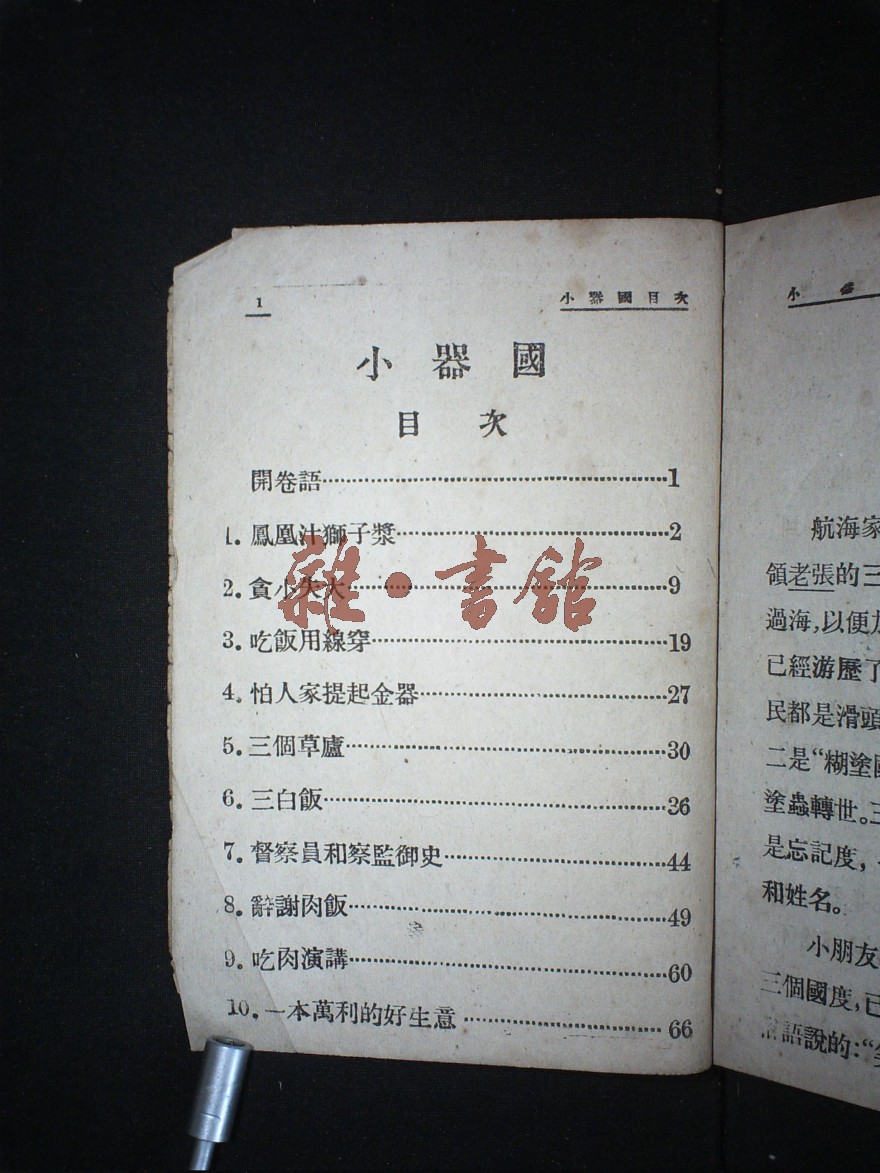 1 小器國目次
小器國
目次
開卷語 1
1. 鳳凰汁獅子漿 2
2. 貪小失大 9
3. 吃飯用線穿 19
4. 怕人家提起金器 27
5. 三個草廬 30
6. 三白飯 36
7. 督察員和察監御史 44
8. 辭謝肉飯 49
9. 吃肉演講 60
10. 一本萬利的好生意 66
雜·書館
小
航海家
領老張的三
過海,以便
已經游歷了
民都是滑頭
二是“糊塗國
塗蟲轉世。三
是忘記度,
和姓名。
小朋友
三個國度,已
語說的:“